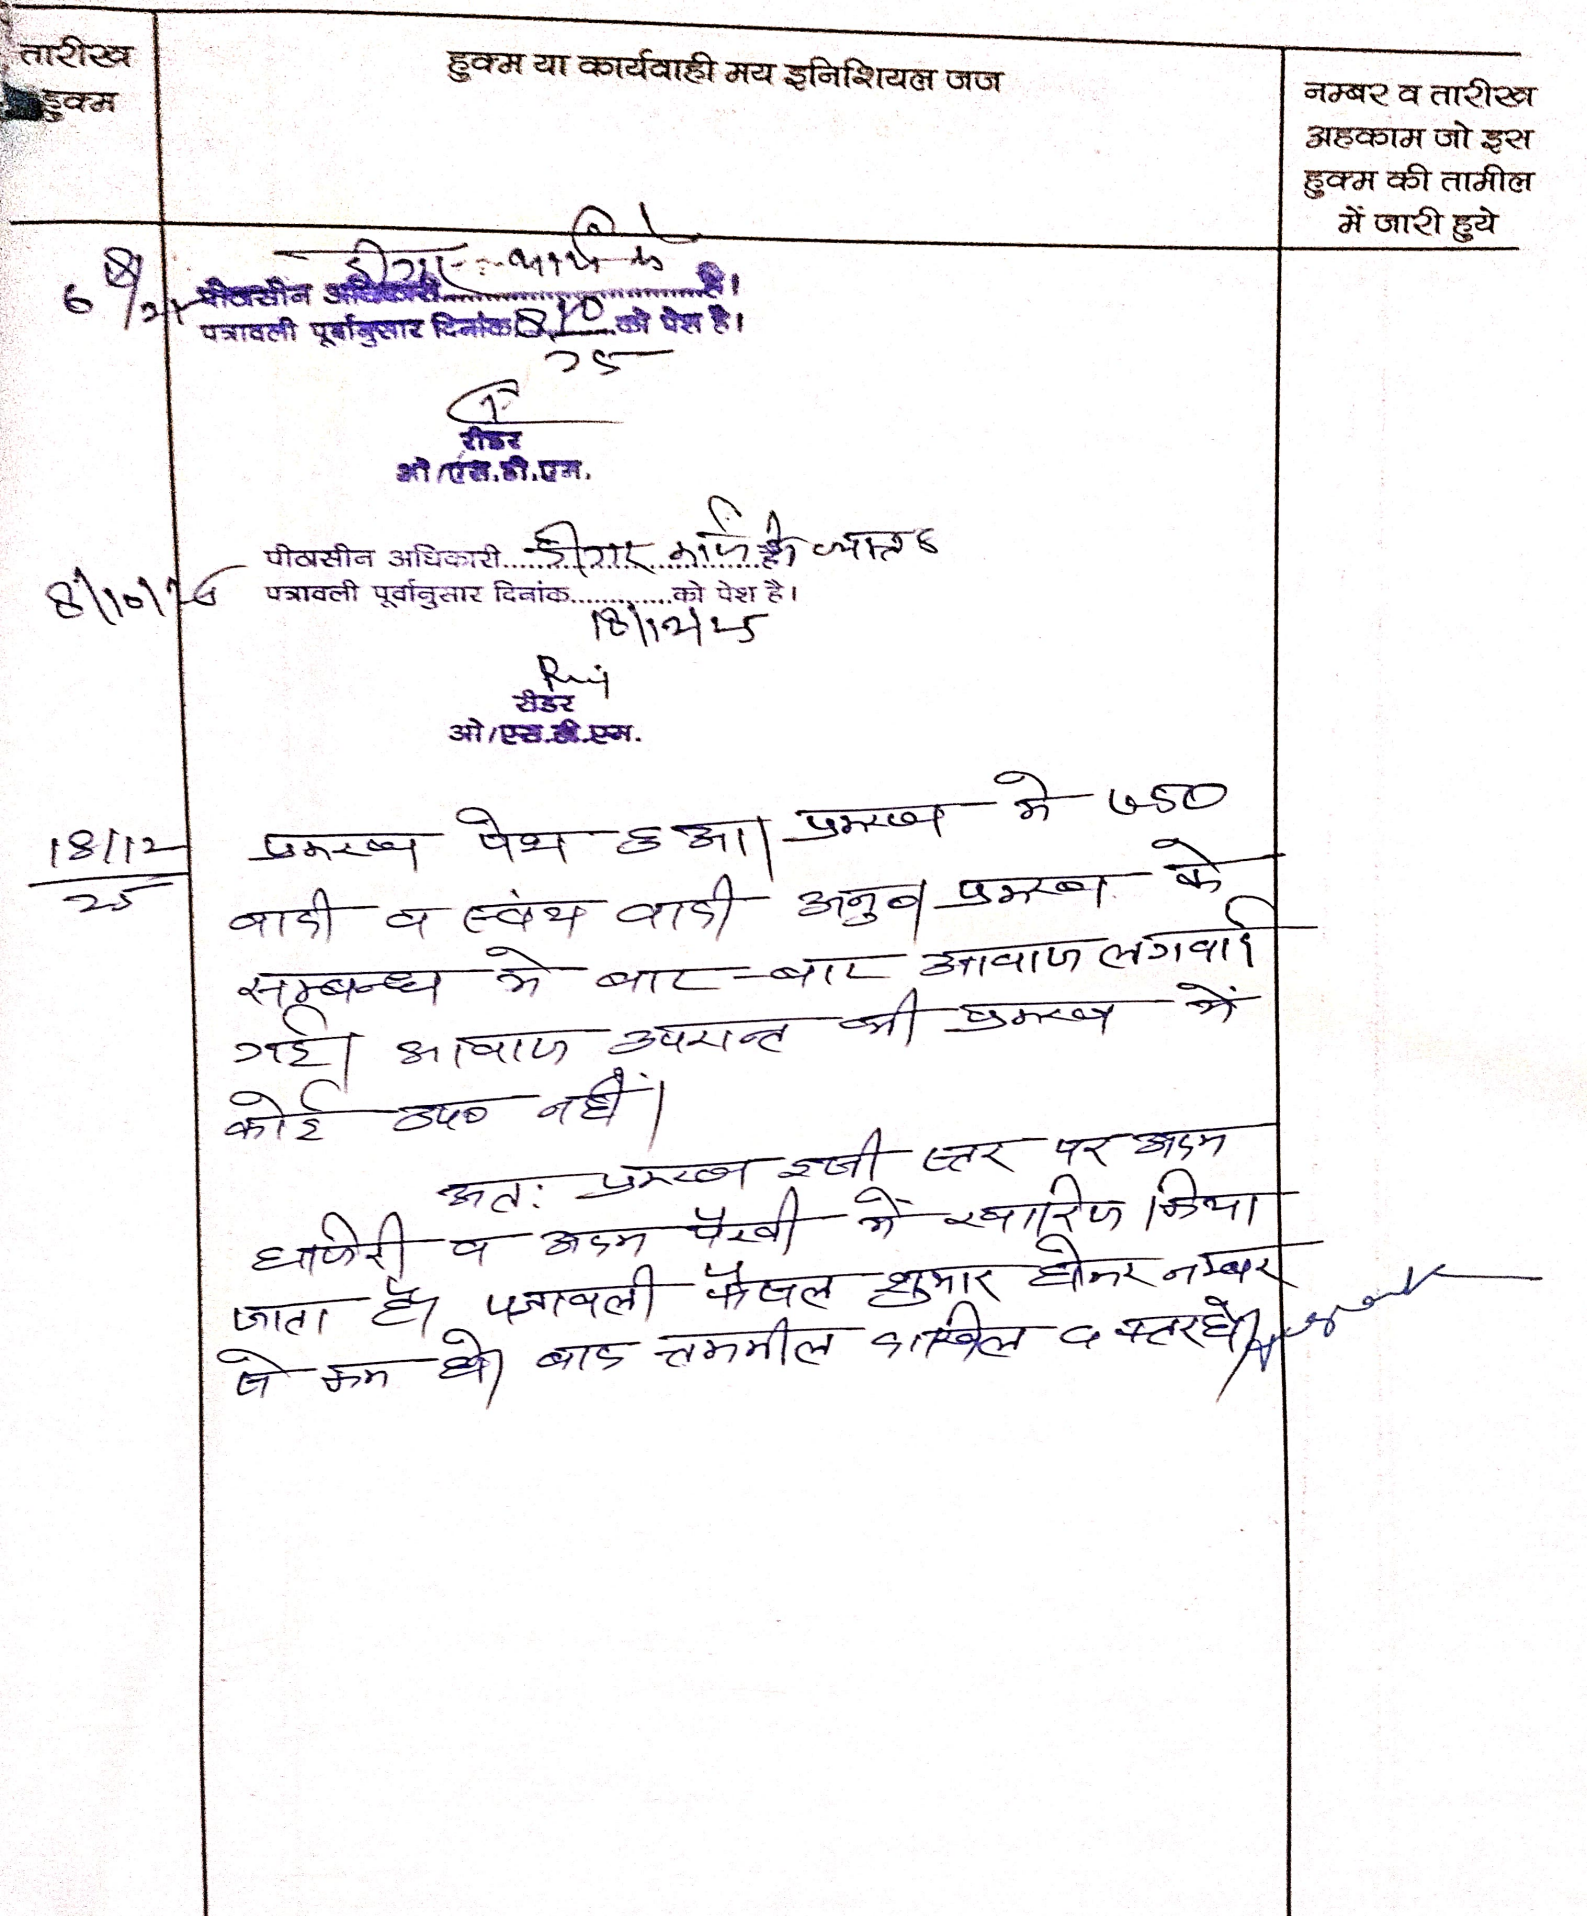 तारीख
हुक्म
हुक्म या कार्यवाही मय इनिशियल जज
नम्बर व तारीख
अहकाम जो इस
हुक्म की तामील
में जारी हुये
पीठासीन अधिकारी है।
पत्रावली पूर्वानुसार दिनांक 8/10 को पेश है।
25
रीडर
ओ/एस.डी.एम.
8/10/25
पीठासीन अधिकारी
पत्रावली पूर्वानुसार दिनांक को पेश है।
18/12/25
रीडर
ओ/एस.डी.एम.
18/12
25
प्रकरण पेश हुआ। प्रकरण में
वादी व स्वंय वादी अनु०। प्रकरण के
सम्बन्ध में बार-बार आवाज लगवाई
गई। आवाज उपरान्त भी प्रकरण में
कोई उप० नहीं।
अत: प्रकरण इसी स्तर पर अदम
हाजरी व अदम पैरवी में खारिज किया
जाता है। पत्रावली फैसल शुमार होकर नम्बर
से कम हो। बाद तकमील दाखिल दफ्तर हो।